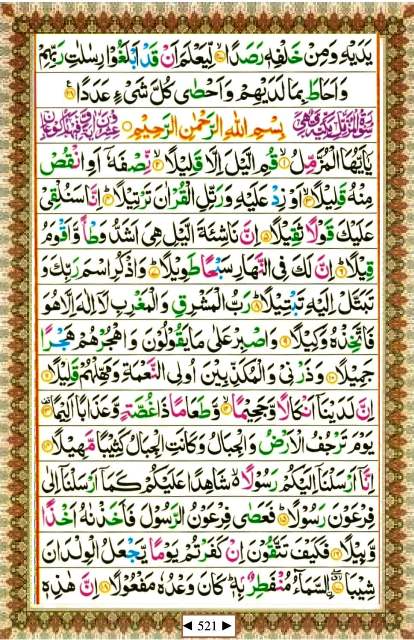 يَدَيْهِ وَمِنْ خَلْفِهٖ رَصَدًاۙ۝۲۷ لِّيَعْلَمَ اَنْ قَدْ اَبْلَغُوْا رِسٰلٰتِ رَبِّهِمْ
وَاَحَاطَ بِمَا لَدَيْهِمْ وَاَحْصٰى كُلَّ شَىْءٍ عَدَدًا۝۲۸
بِسْمِ اللّٰهِ الرَّحْمٰنِ الرَّحِيْمِ
يٰۤاَيُّهَا الْمُزَّمِّلُۙ۝۱ قُمِ الَّيْلَ اِلَّا قَلِيْلًاۙ۝۲ نِّصْفَهٗۤ اَوِ انْقُصْ
مِنْهُ قَلِيْلًاۙ۝۳ اَوْ زِدْ عَلَيْهِ وَرَتِّلِ الْقُرْاٰنَ تَرْتِيْلًاؕ۝۴ اِنَّا سَنُلْقِىْ
عَلَيْكَ قَوْلًا ثَقِيْلًا۝۵ اِنَّ نَاشِئَةَ الَّيْلِ هِىَ اَشَدُّ وَطْـًٔا وَّاَقْوَمُ
قِيْلًاؕ۝۶ اِنَّ لَكَ فِى النَّهَارِ سَبْحًا طَوِيْلًاؕ۝۷ وَاذْكُرِ اسْمَ رَبِّكَ وَ
تَبَتَّلْ اِلَيْهِ تَبْتِيْلًاؕ۝۸ رَبُّ الْمَشْرِقِ وَالْمَغْرِبِ لَاۤ اِلٰهَ اِلَّا هُوَ
فَاتَّخِذْهُ وَكِيْلًا۝۹ وَاصْبِرْ عَلٰى مَا يَقُوْلُوْنَ وَاهْجُرْهُمْ هَجْرًا
جَمِيْلًا۝۱۰ وَذَرْنِىْ وَالْمُكَذِّبِيْنَ اُولِى النَّعْمَةِ وَمَهِّلْهُمْ قَلِيْلًا۝۱۱
اِنَّ لَدَيْنَاۤ اَنْكَالًا وَّجَحِيْمًاۙ۝۱۲ وَّطَعَامًا ذَا غُصَّةٍ وَّعَذَابًا اَلِيْمًا۝۱۳
يَوْمَ تَرْجُفُ الْاَرْضُ وَالْجِبَالُ وَكَانَتِ الْجِبَالُ كَثِيْبًا مَّهِيْلًا۝۱۴
اِنَّاۤ اَرْسَلْنَاۤ اِلَيْكُمْ رَسُوْلًا ۙ شَاهِدًا عَلَيْكُمْ كَمَاۤ اَرْسَلْنَاۤ اِلٰى
فِرْعَوْنَ رَسُوْلًاؕ۝۱۵ فَعَصٰى فِرْعَوْنُ الرَّسُوْلَ فَاَخَذْنٰهُ اَخْذًا
وَّبِيْلًا۝۱۶ فَكَيْفَ تَتَّقُوْنَ اِنْ كَفَرْتُمْ يَوْمًا يَّجْعَلُ الْوِلْدَانَ
شِيْبًاۖ۝۱۷ السَّمَآءُ مُنْفَطِرٌۢ بِهٖؕ كَانَ وَعْدُهٗ مَفْعُوْلًا۝۱۸ اِنَّ هٰذِهٖ
◄ 521 ►